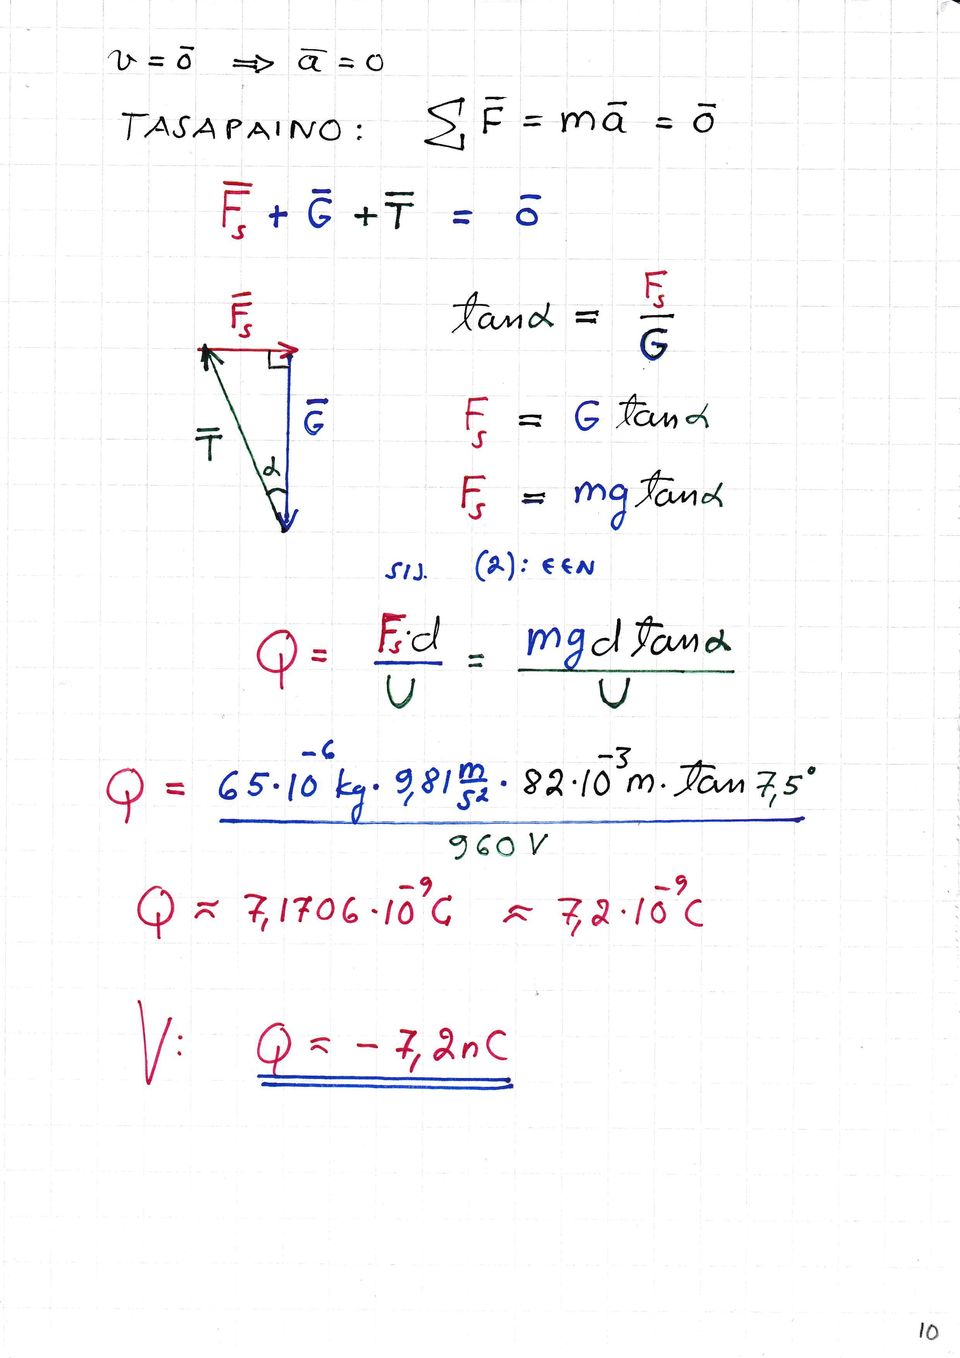 v = ō ⇒ ā = 0
TASAPAINO: ∑ F̄ = mā = ō
F̄s + Ḡ + T̄ = ō
F̄s
tanα = Fs/G
T̄ α Ḡ
Fs = G tanα
Fs = mg tanα
SIJ. (2): EEN
Q = Fs·d/U = mgd tanα/U
Q = 65·10⁻⁶ kg · 9,81 m/s² · 82·10⁻³ m · tan 7,5° / 960 V
Q ≈ 7,1706·10⁻⁹ C ≈ 7,2·10⁻⁹ C
V: Q ≈ -7,2nC
10